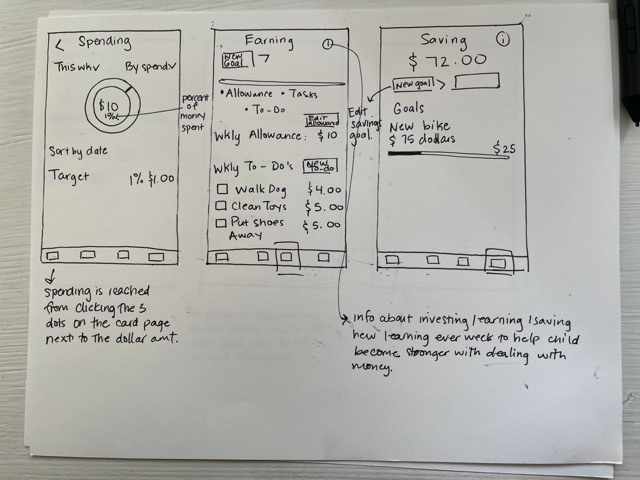 < Spending
This wk v By spend v
$10
1%
percent
of
money
spent
Sort by date
Target 1% $1.00
Spending is reached
from clicking the 3
dots on the card page
next to the dollar amt.
Earning i
New
Goal 7
• Allowance • Tasks
• To-Do
Edit
Allowance
Wkly Allowance: $10
Wkly To-Do's New
To-do
Walk Dog $4.00
Clean Toys $5.00
Put shoes $5.00
Away
Edit
savings
goal.
Saving i
$72.00
New goal >
Goals
New bike
$75 dollars
$25
Info about investing/earning/saving
new learning ever week to help child
become stronger with dealing with
money.